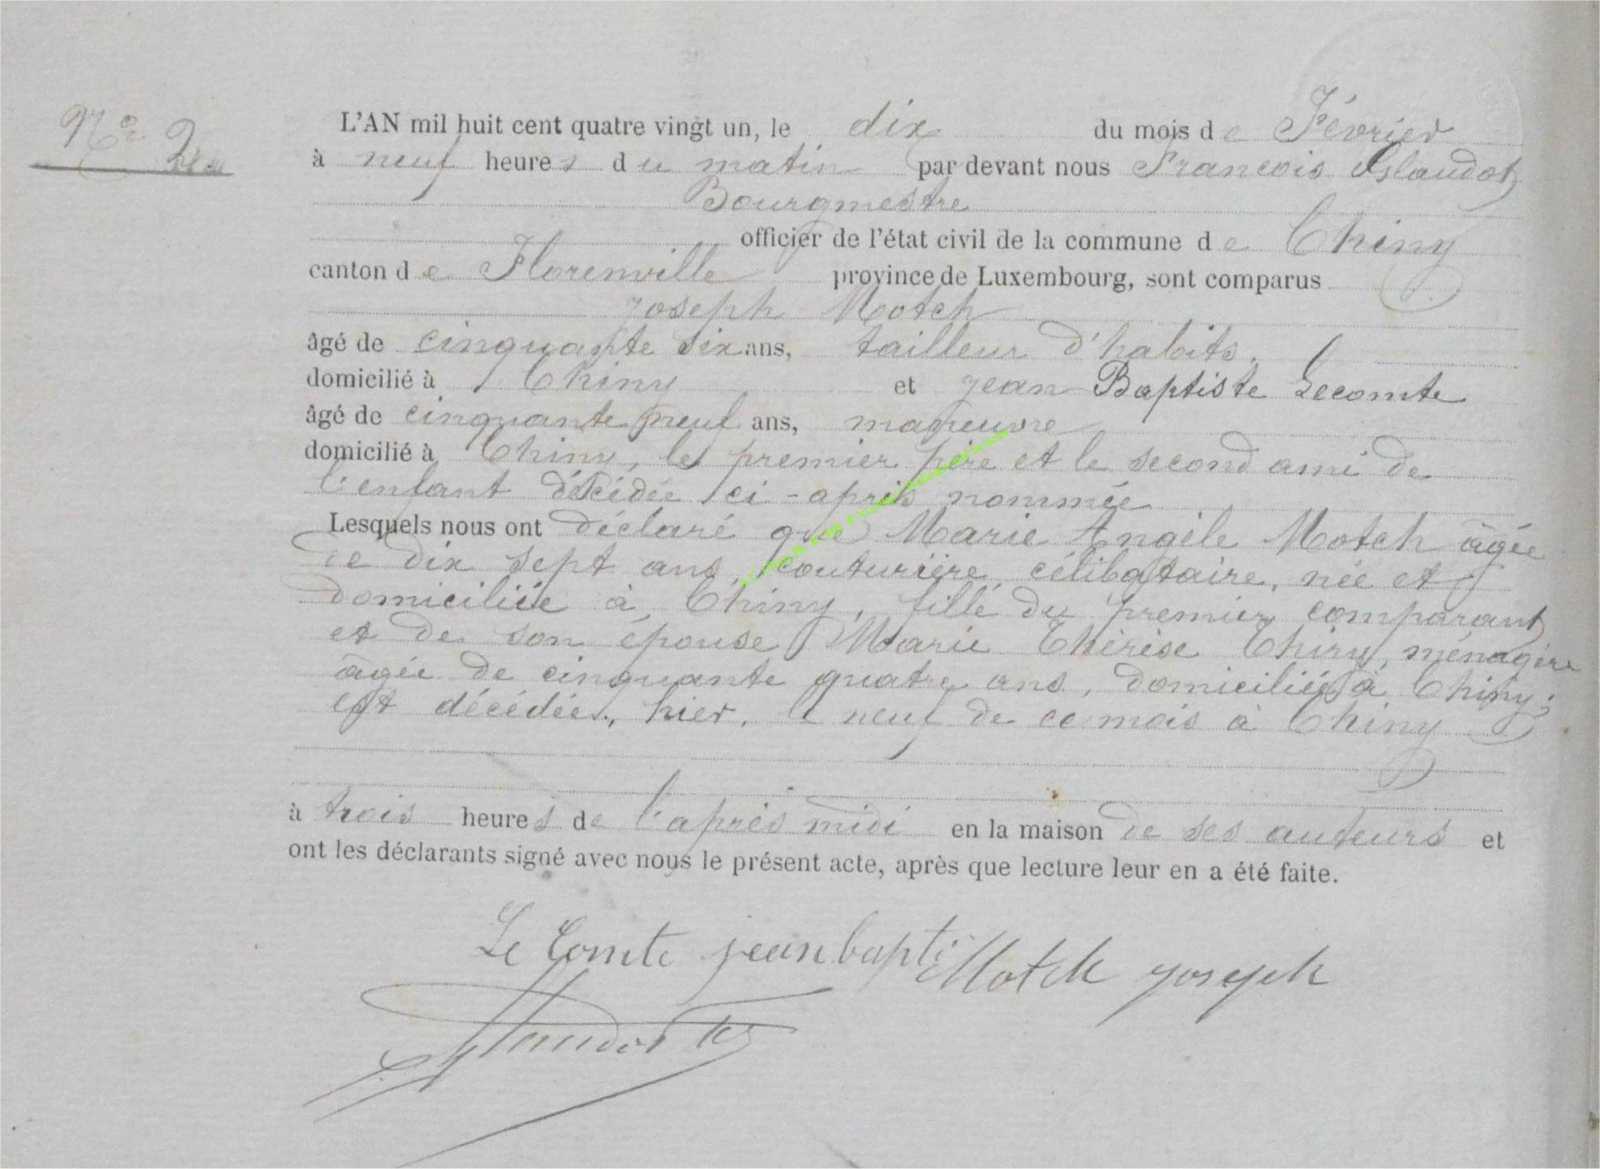 N° 2
L'AN mil huit cent quatre vingt un, le dix du mois de Février
à neuf heures du matin par devant nous François Glaudot
Bourgmestre
officier de l'état civil de la commune de Chiny
canton de Florenville province de Luxembourg, sont comparus
Joseph Motch
âgé de cinquante six ans, tailleur d'habits.
domicilié à Chiny et jean Baptiste Lecomte
âgé de cinquante neuf ans, maneuvre
domicilié à Chiny, le premier père et le second ami de
l'enfant décédée ci-après nommée
Lesquels nous ont déclaré que Marie Angèle Motch âgée
de dix sept ans, couturière, célibataire, née et
domiciliée à Chiny, fille du premier comparant
et de son épouse Marie Thérèse Thiry, ménagère
âgée de cinquante quatre ans, domiciliée à Chiny;
est décédée, hier, neuf de ce mois à Chiny
à trois heures de l'après midi en la maison de ses auteurs et
ont les déclarants signé avec nous le présent acte, après que lecture leur en a été faite.
Le Comte jean bapti Motch joseph